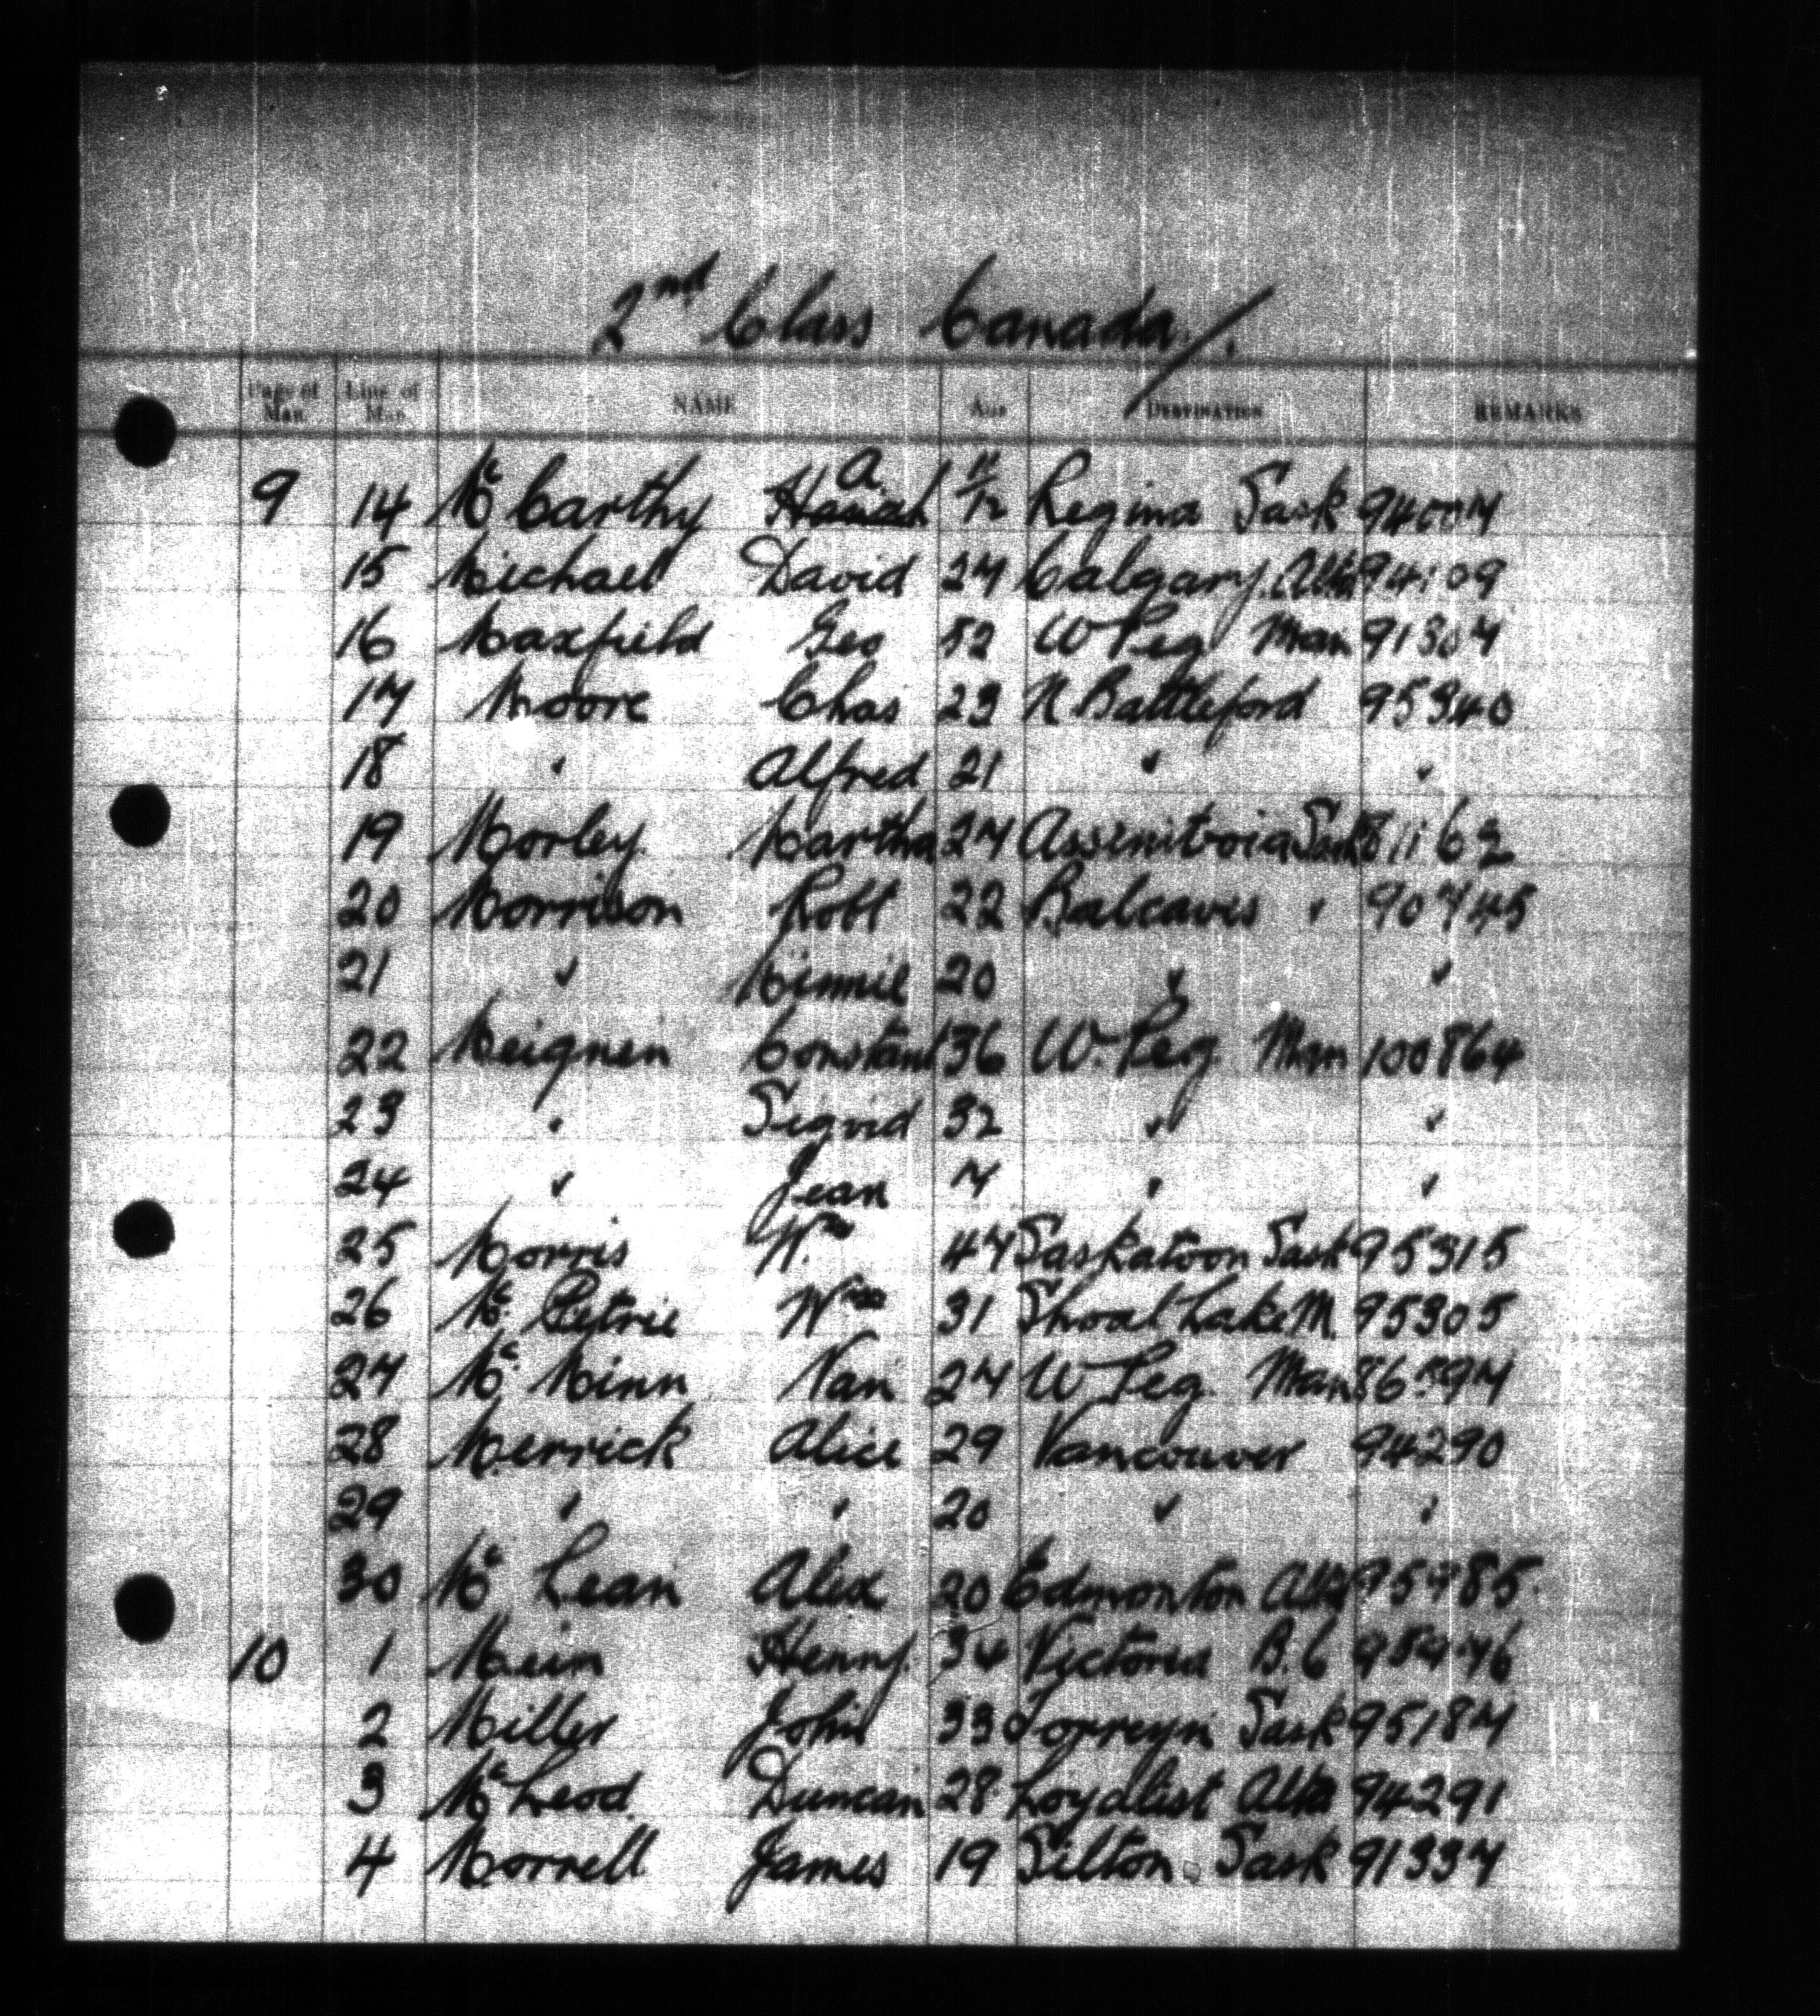 2nd Class Canada.
Page of Man. Line of Man. NAME Age DESTINATION REMARKS
9 14 Mc Carthy A 11/12 Regina Sask 94007
15 Michael David 27 Calgary Alta 94109
16 Maxfield Geo 52 W Peg Man 91307
17 Moore Chas 23 N Battleford 95340
18 " Alfred 21 " "
19 Morley Martha 27 Assiniboia Sask 81162
20 Morrison Robt 22 Balcarres " 90745
21 " Minnie 20 " "
22 Meignen Constant 36 W. Peg Man 100864
23 " Sigrid 32 " "
24 " Jean 7 " "
25 Morris Wm 47 Saskatoon Sask 95315
26 Mc Petrie Wm 31 Shoal Lake M. 95305
27 Mc Minn Nan 27 W Peg. Man
28 Merrick Alice 29 Vancouver 94290
29 " " 20 " "
30 Mc Lean Alex 20 Edmonton Alta
10 1 Mein Henry 34 Victoria B.C
2 Miller John 33 Sask 95187
3 Mc Leod Duncan 28 Loyalist Alta 94291
4 Morrell James 19 Silton Sask 91337